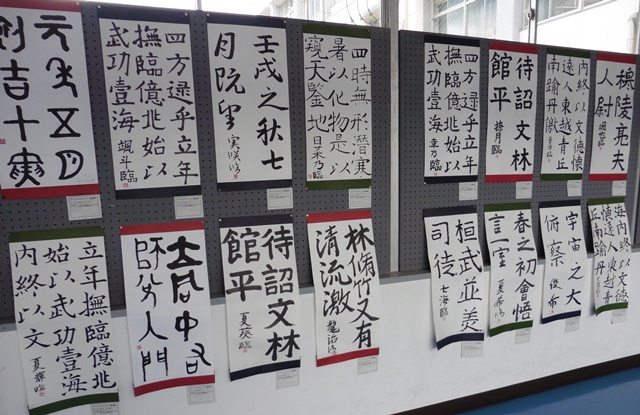 元年五月
初吉十寅
四方逯乎立年
撫臨億兆始以
武功壹海 颯斗臨
壬戌之秋七
月既望 実咲臨
四時無形潜寒
暑以化物是以
窺天鑒地 日菜乃臨
四方逯乎立年
撫臨億兆始以
武功壹海 章乃臨
待詔文林
館平
内終以文徳懐
遠人東越青丘
南踰丹徼
穆陵亮夫
人尉
立年撫臨億兆
始以武功壹海
内終以文 夏輝臨
中右
師兌入門
待詔文林
館平 夏葵臨
林脩竹又有
清流激
桓武並羨
司徒 七海臨
春之初會悟
言一室 夏希臨
宇宙之大
俯察 俊希
海内終以文徳
懐遠人東越青
丘南踰丹